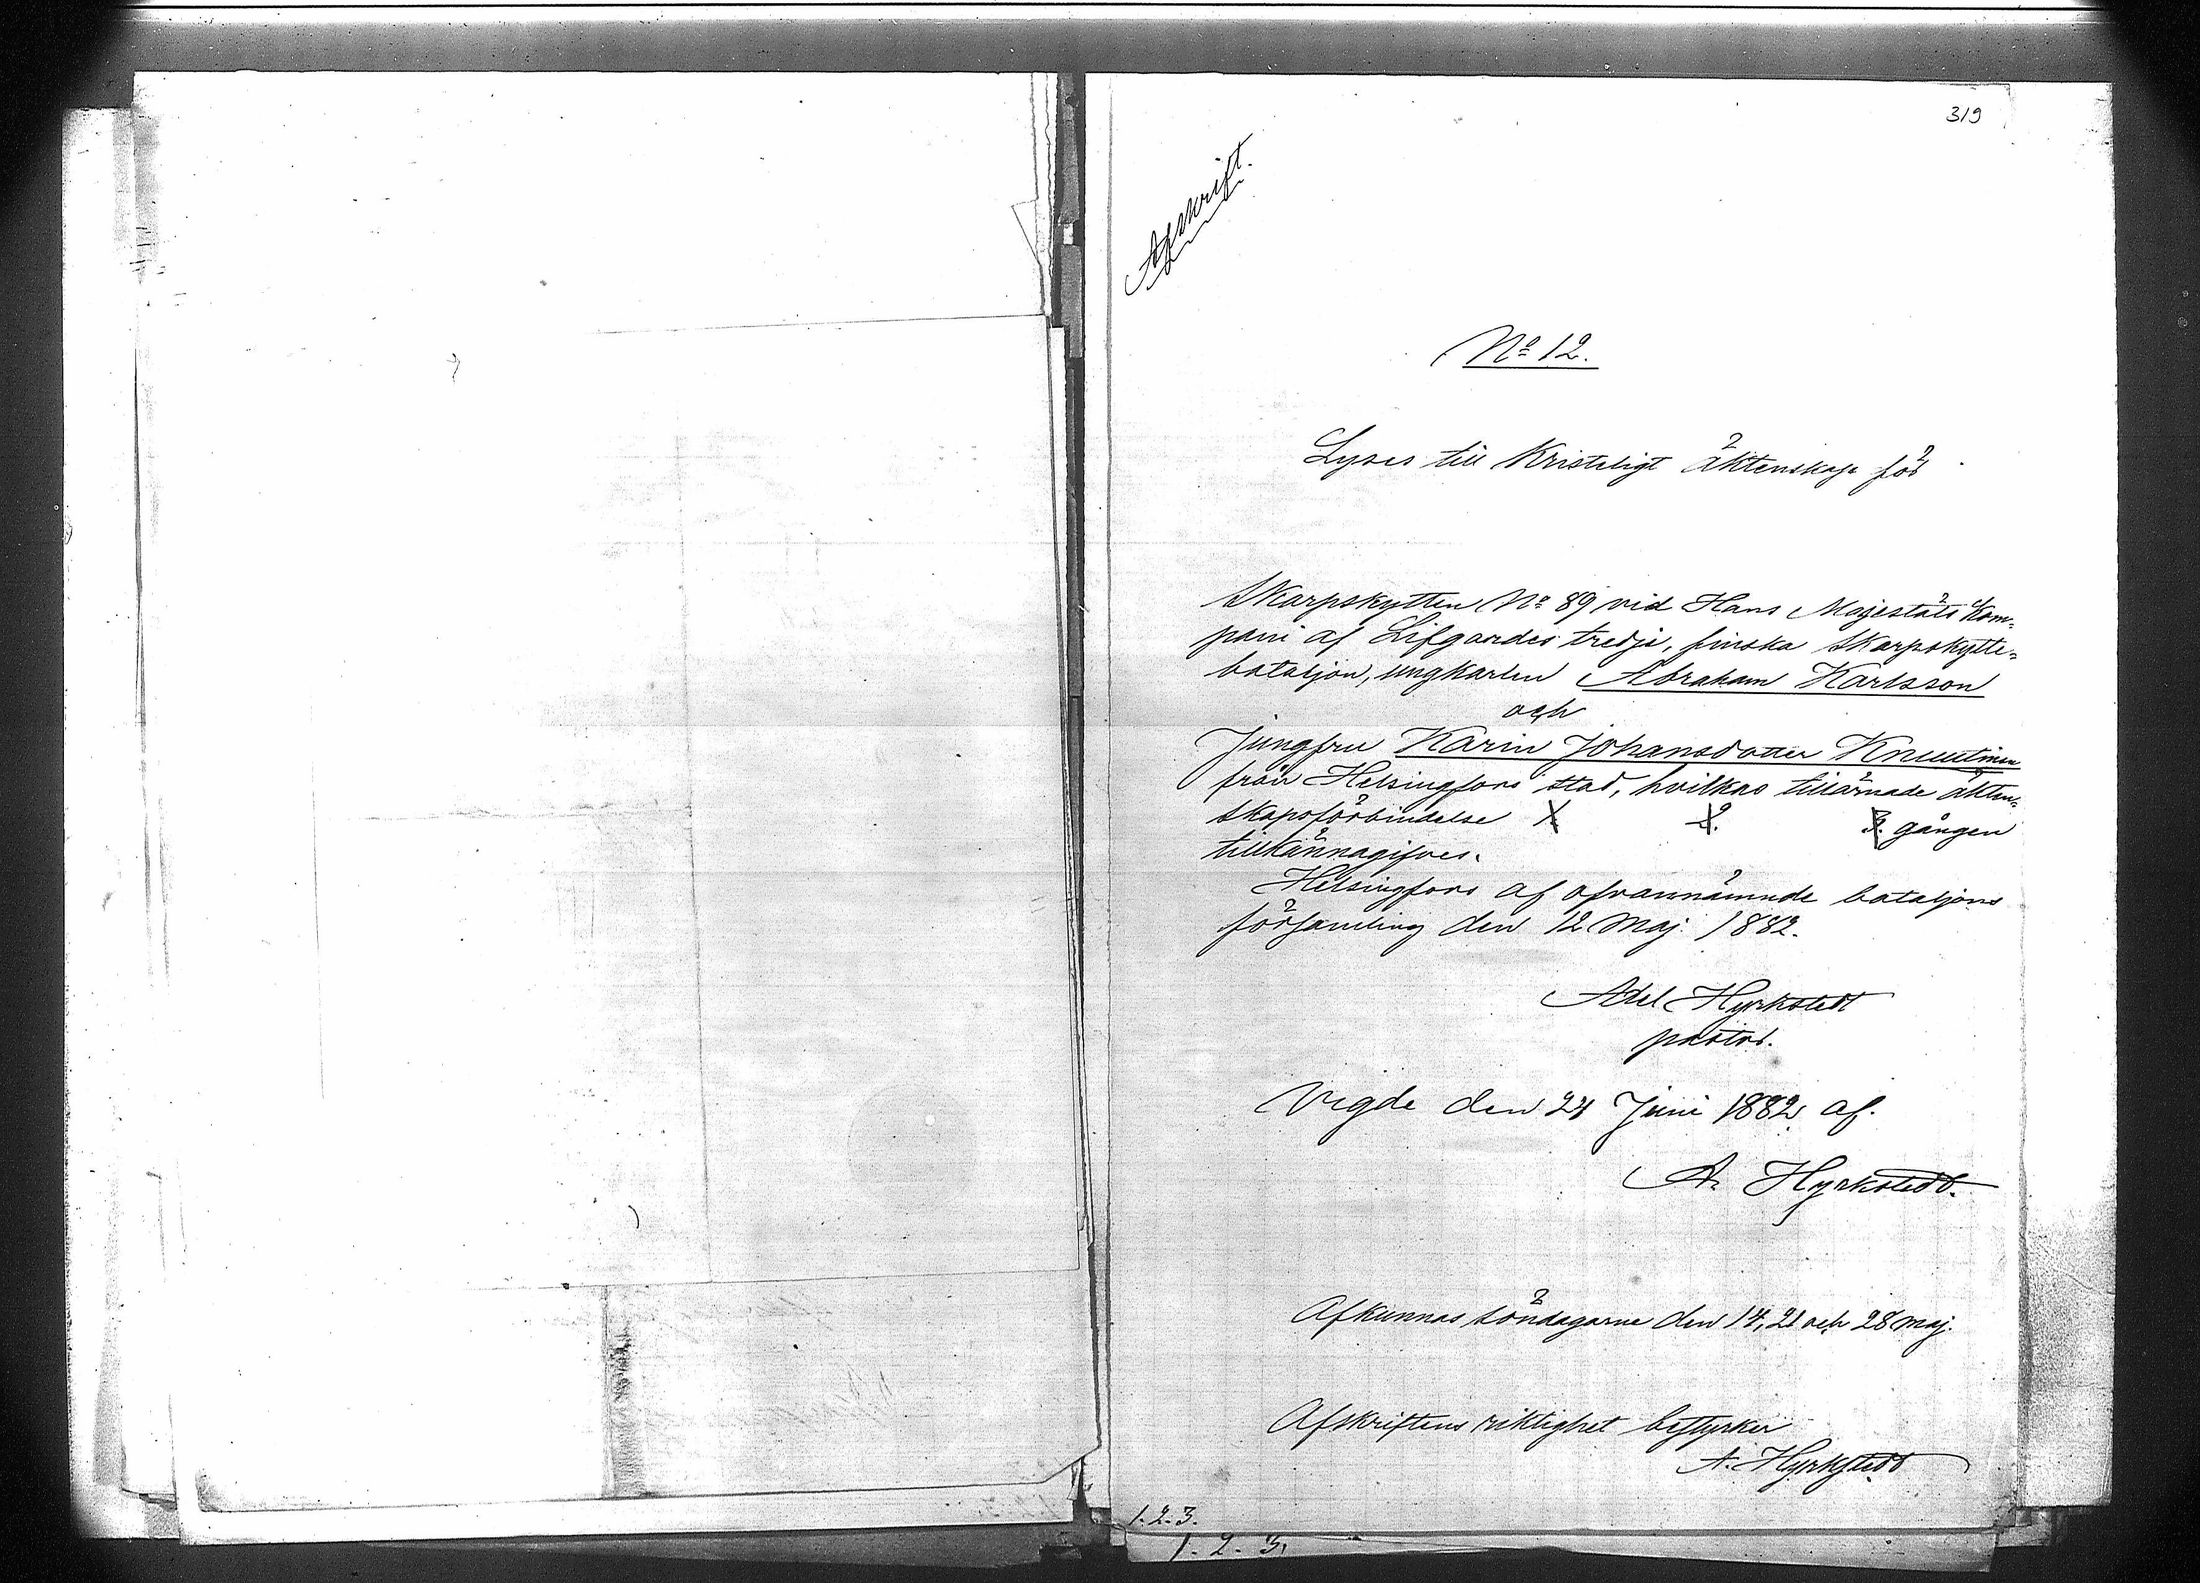 319
Afskrift.
No 12.
Lyses till Kristeligt äktenskap för
Skarpskytten No 89 vid Hans Majestäts Kom=
pani af Lifgardes tredje, finska Skarpskytte=
bataljon, ungkarlen Abraham Karlsson
och
Jungfru Karin Johansdotter Knuutinen
från Helsingfors stad, hvilkas tillärnade äkten=
skapsförbindelse 1. 2. 3. gången
tillkännagifves.
Helsingfors af ofvannämnde bataljons
församling den 12 Maj 1882.
Axel Hyrkstedt
pastor.
Vigde den 24 Juni 1882 af.
A. Hyrkstedt.
Afkunnas söndagarne den 14, 21 och 28 maj.
Afskriftens riktighet bestyrker
A. Hyrkstedt
1. 2. 3.
1. 2. 3.